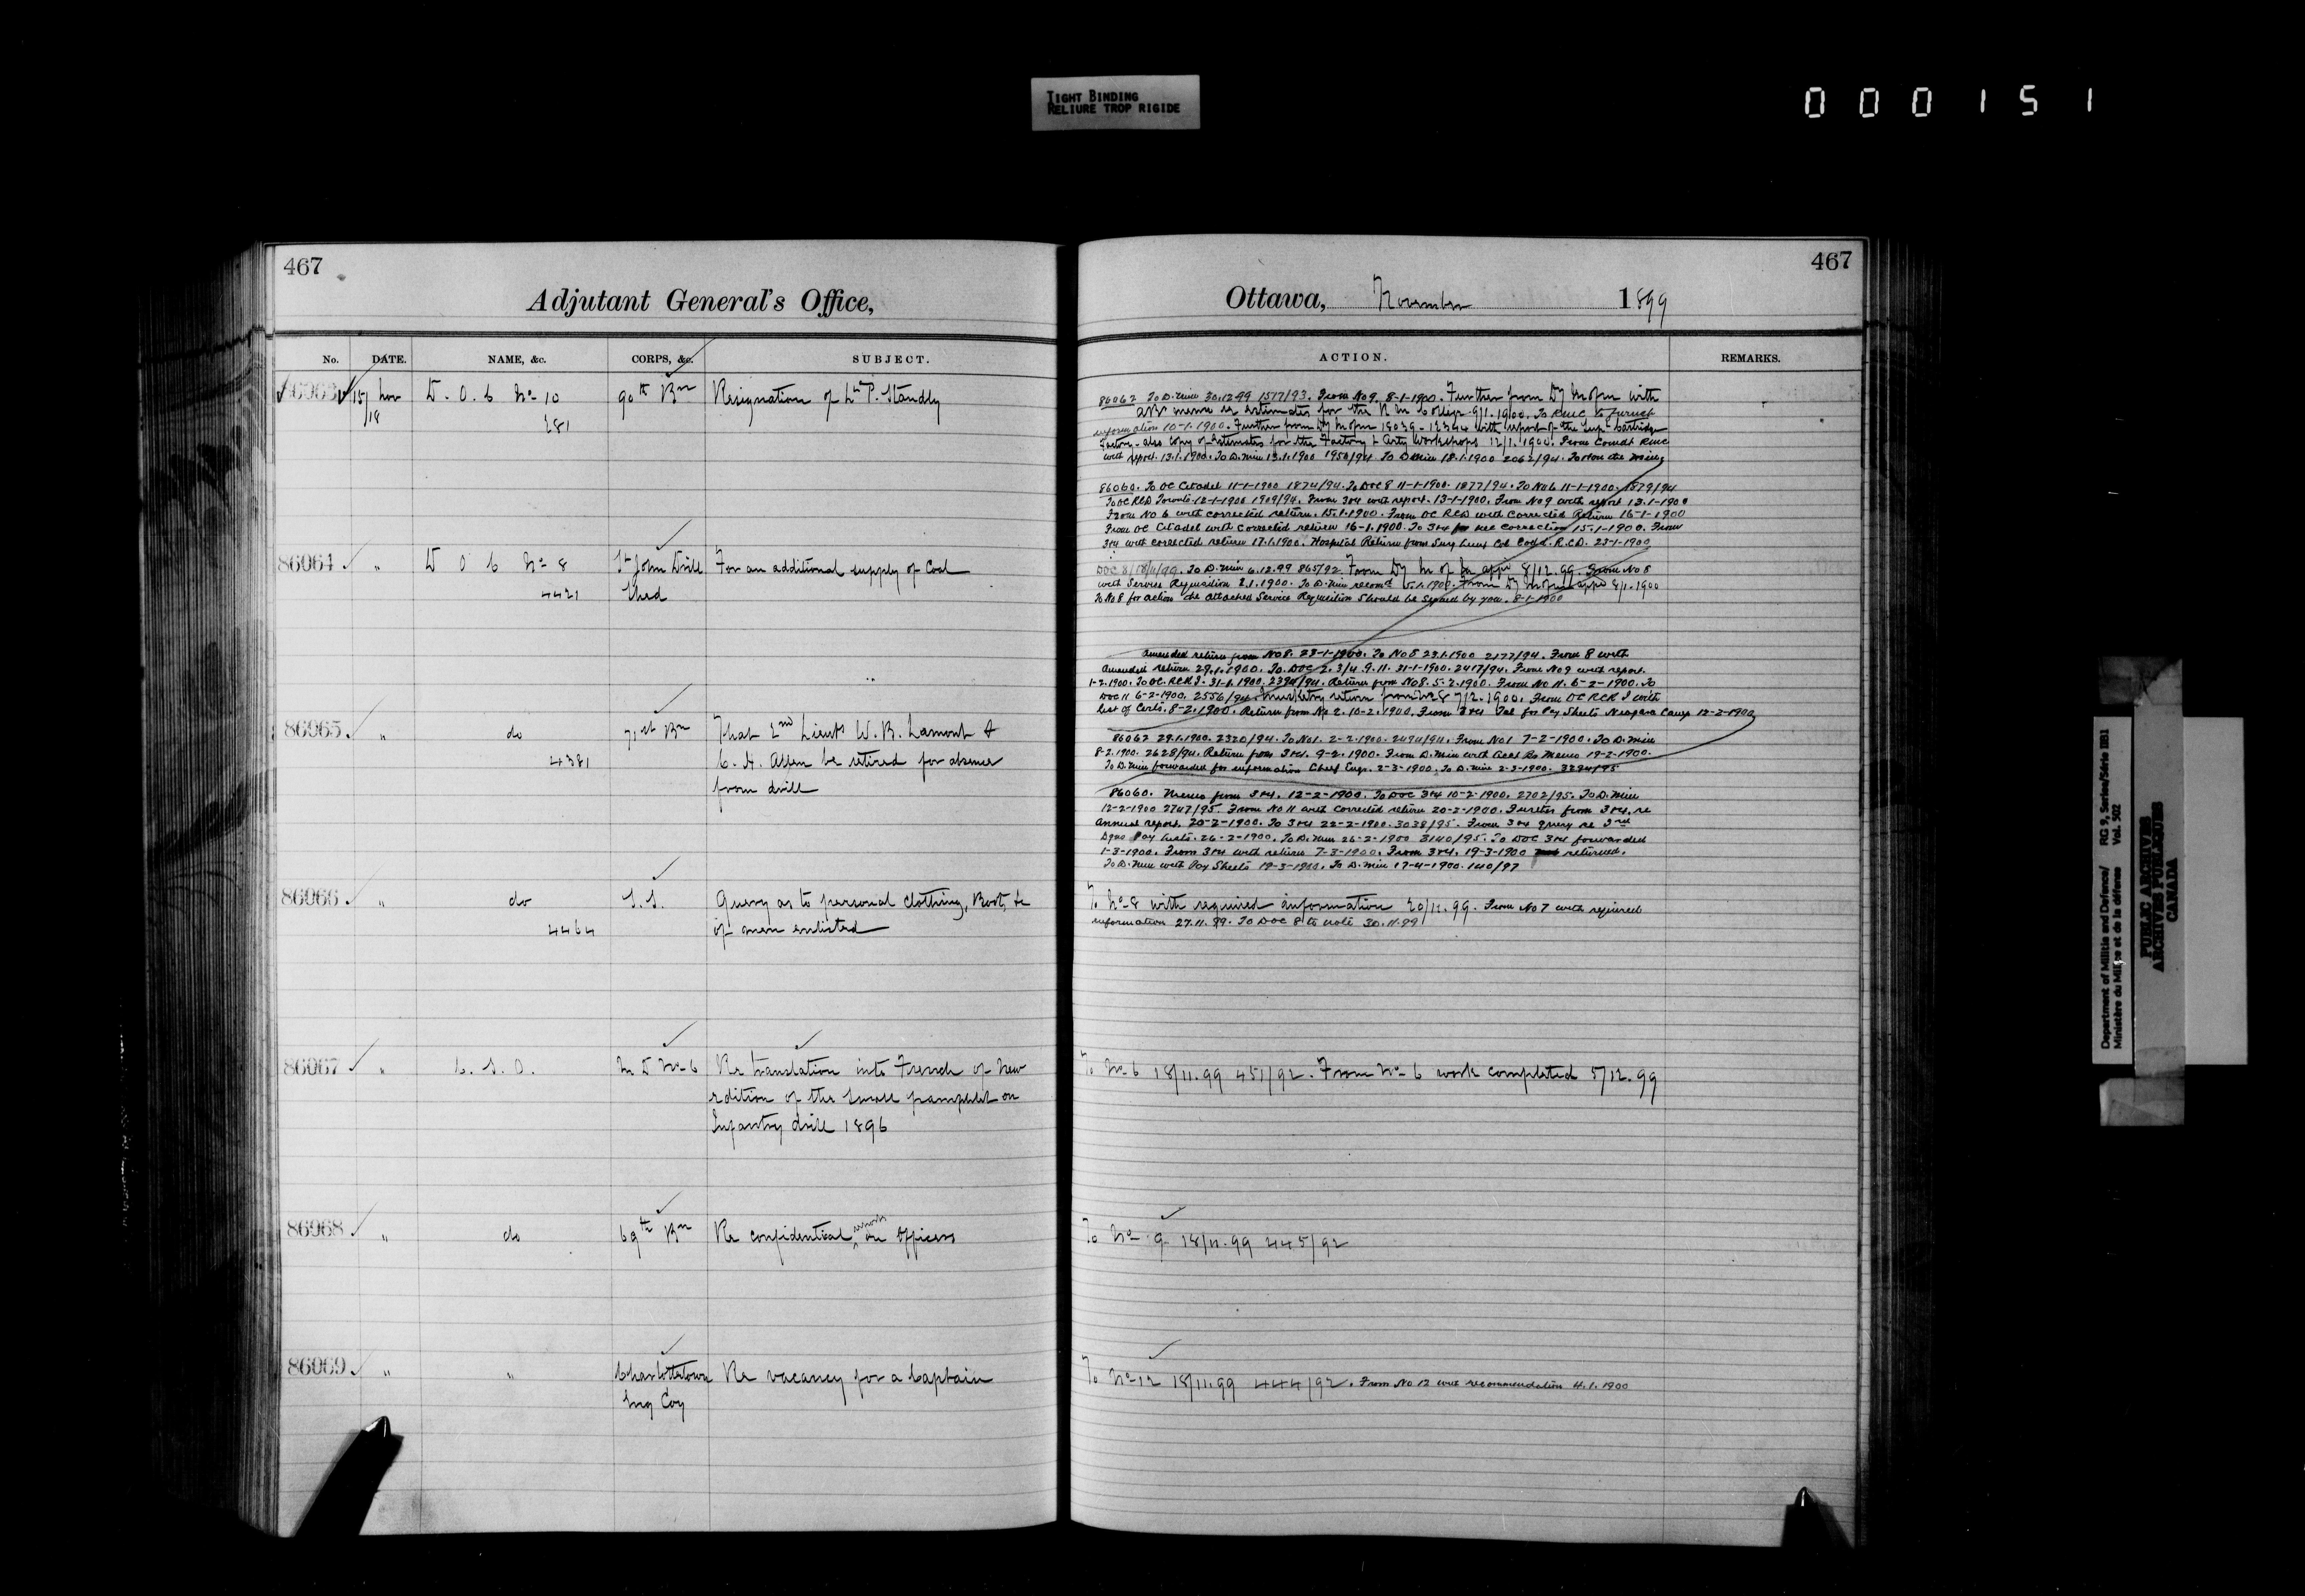 TIGHT BINDING
RELIURE TROP RIGIDE
000151
467
Adjutant General's Office,
No. DATE. NAME, &c. CORPS, &c. SUBJECT.
86063 15/18 Nov D.O.C. No 10 90th Bn Resignation of Lt P. Standly
281
86064 " D O C No 8 St John Drill For an additional supply of Coal
4421 Shed
86065 " do 71st Bn That 2nd Lieuts W.B. Lamont &
4381 C.H. Allen be retired for absence
from drill
86066 " do S.S. Query as to personal clothing, Boots, &c
4464 of men enlisted
86067 " C.S.O. M D No 6 Re translation into French of New
edition of the small pamphlet on
Infantry drill 1896
86068 " do 69th Bn Re confidential report on Officers
86069 " " Charlottetown Re vacancy for a Captain
Eng Coy
467
Ottawa, November 1899
ACTION. REMARKS.
86062 To D. Min 30.12.99 1517/93. From No 9. 8-1-1900. Further from Dy M of M with
information 10-1-1900. Further from Dy M of M 18039-12344 with report of the Sup. Cartridge
Factory - also Copy of Estimates for the Factory & Arty Workshops 12/1.1900. From Comdt RMC
with report. 13.1.1900. To D. Min 13.1.1900 1950/94. To D Min 18.1.1900 2062/94.
86060. To OC Citadel 11-1-1900 1874/94. To DOC 8 11-1-1900. 1877/94. To No 6 11-1-1900. 1879/94
To OC RCD Toronto. 12-1-1900 1909/94. From 3&4 with report. 13-1-1900. From No 9 with report 13.1-1900
From No 6 with corrected return. 15.1.1900. From OC RCD with Corrected Return 16-1-1900
From OC Citadel with corrected return 16-1.1900. To 3&4 for nec correction 15-1-1900. From
3&4 with corrected return 17.1.1900. Hospital Return from Surg Lieut Col Codd. R.C.D. 23-1-1900
DOC 8/18/11/99. To D. Min 6.12.99 865/92. From Dy M of M appd 8/12.99. From No 8
with Service Requisition 2.1.1900. To D. Min recomd 5.1.1900. From Dy M of M appd 8/1.1900
To No 8 for action the attached Service Requisition should be signed by you. 8-1-1900
Amended return from No 8. 23-1-1900. To No 8 23.1.1900 2177/94. From 8 with
Amended return 29.1.1900. To DOC 2. 3/4. 9. 11. 31-1-1900. 2417/94. From No 9 with report.
1-2.1900. To OC. RCRI. 31-1.1900. 2394/94. Return from No 8. 5-2.1900. From No 11. 6-2-1900. To
DOC 11 6-2-1900. 2556/94. Musketry return from No 8 7/2.1900. From OC RCRI with
list of Certs. 8-2.1900. Return from No 2. 10-2.1900. From 3&4 Tel for Pay Sheets Niagara Camp 12-2-1900
86062 29.1.1900. 2320/94. To No 1. 2-2-1900. 2494/94. From No 1 7-2-1900. To D. Min
8-2.1900. 2628/94. Return from 3&4. 9-2.1900. From D. Min with 19-2-1900.
To D. Min forwarded for information Chief Engr. 2-3-1900. To D. Min 2-3-1900. 3294/95
86060. Memo from 3&4. 12-2-1900. To DOC 3&4 10-2-1900. 2702/95. To D. Min
12-2-1900 2747/95. From No 11 with Corrected return 20-2-1900. Further from 3&4. re
annual report. 20-2-1900. To 3&4 22-2-1900. 3038/95. From 3&4 query re 3rd
Dgns Pay lists. 26-2-1900. To D. Min 26-2-1900 3140/95. To DOC 3&4 forwarded
1-3-1900. From 3&4 with return 7-3-1900. From 3&4. 19-3-1900 returned.
To D. Min with Pay Sheets 19-3-1900. To D. Min 17-4-1900. 140/97
To No 8 with required information 20/11.99. From No 7 with required
information 27.11.99. To DOC 8 to note 30.11.99
To No 6 18/11.99 451/92. From No 6 work completed 5/12.99
To No 9 18/11.99 445/92
To No 12 18/11.99 444/92. From No 12 with recommendation 4.1.1900
Department of Militia and Defence/ RG 9, Series/Série IIB1
Ministère du Milice et de la défense Vol. 502
PUBLIC ARCHIVES
ARCHIVES PUBLIQUES
CANADA